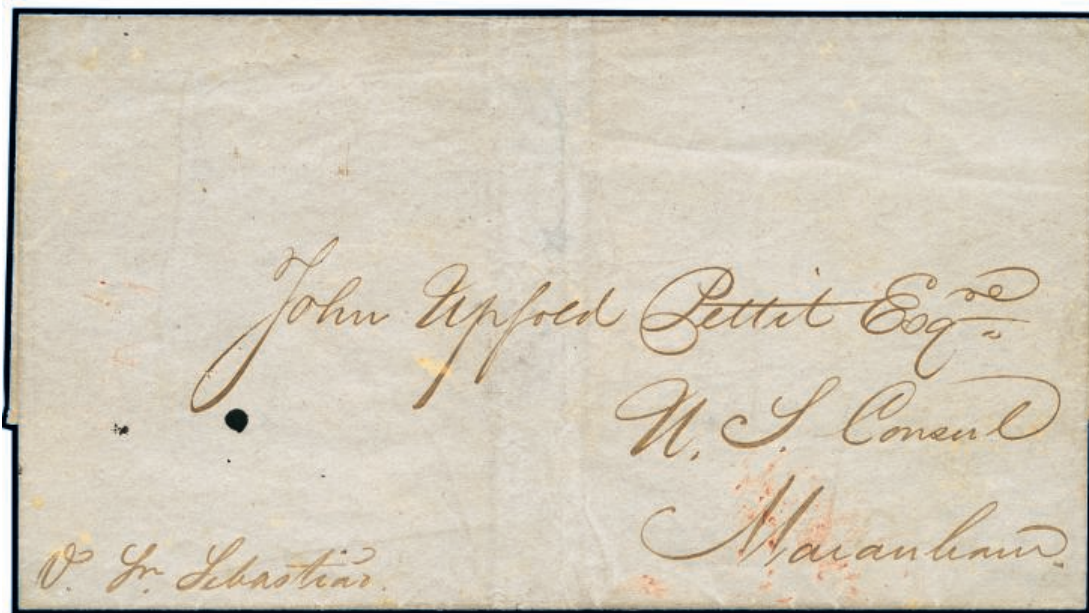 John Upfold Pettit Esqre
U. S. Consul
Maranham
Sn Sebastião.